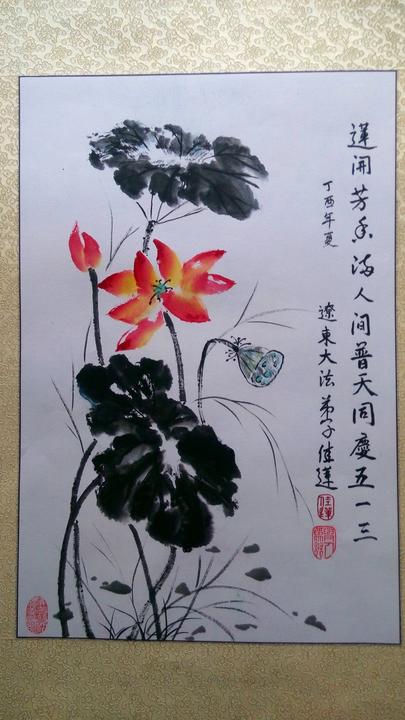 蓮開芳香滿人间普天同慶五一三
丁酉年夏
遼東大法弟子佳蓮
佳蓮